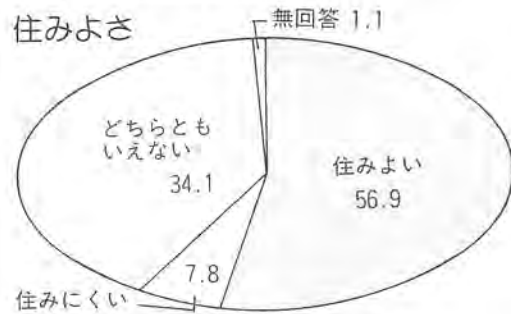 住みよさ
無回答 1.1
どちらとも
いえない
34.1
住みよい
56.9
7.8
住みにくい